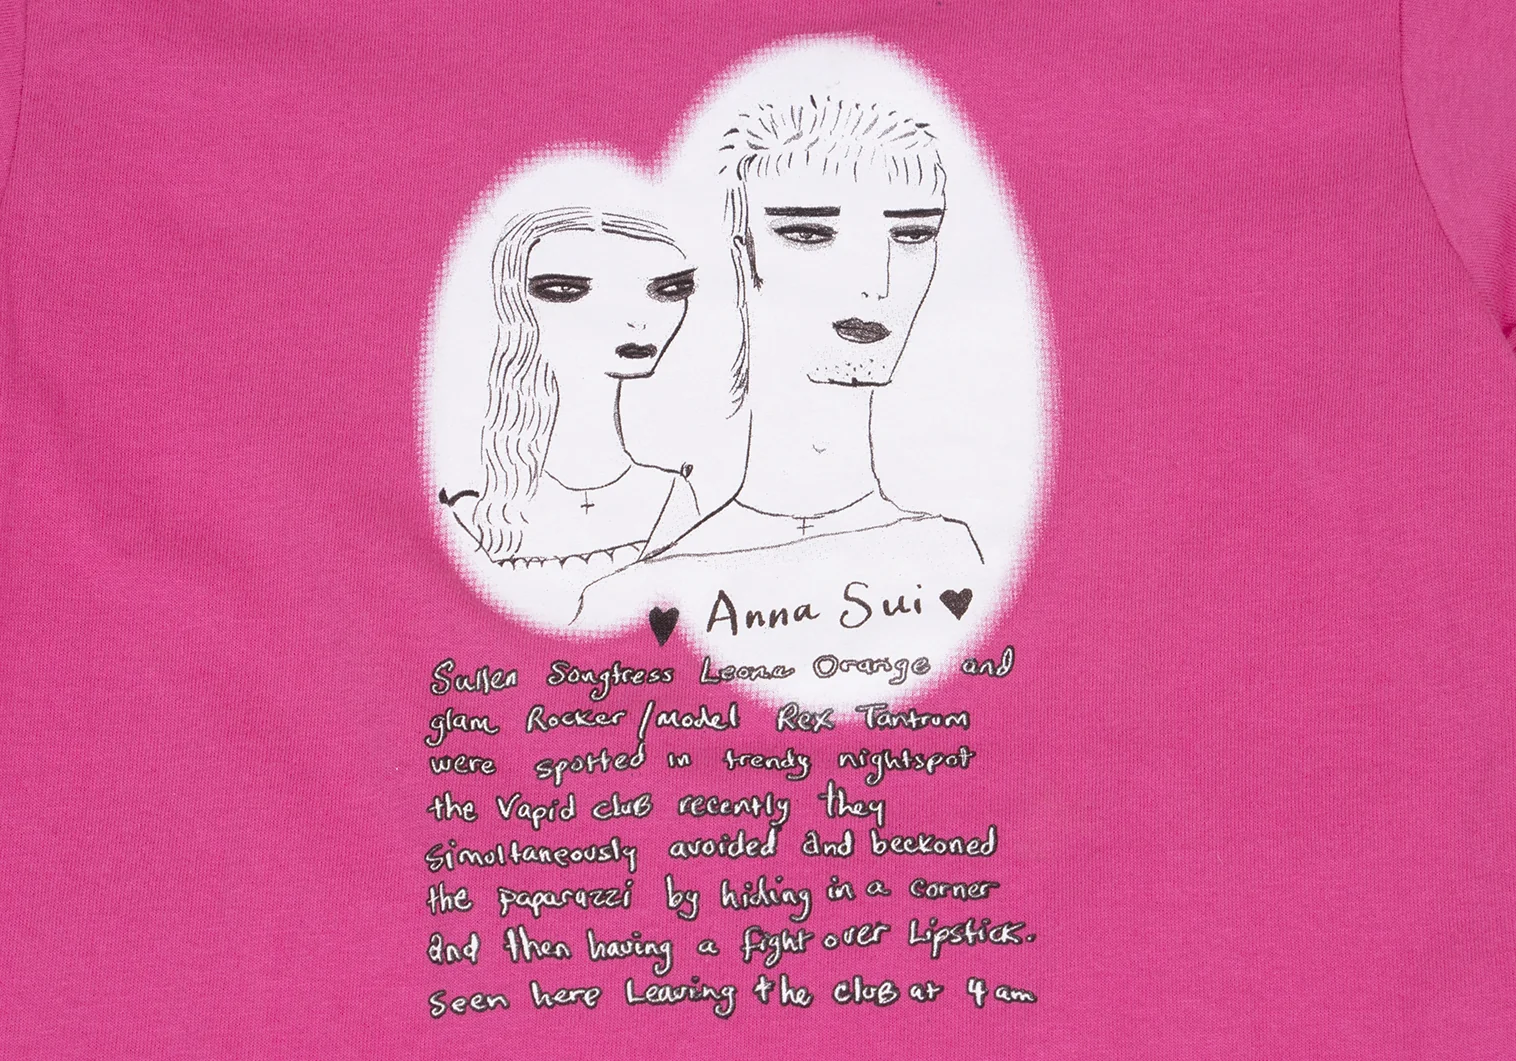 Anna Sui
Sullen Songtress Leona Orange and
glam Rocker/model Rex Tantrum
were spotted in trendy nightspot
the Vapid club recently they
simultaneously avoided and beckoned
the paparazzi by hiding in a corner
and then having a fight over Lipstick.
Seen here Leaving the club at 4am